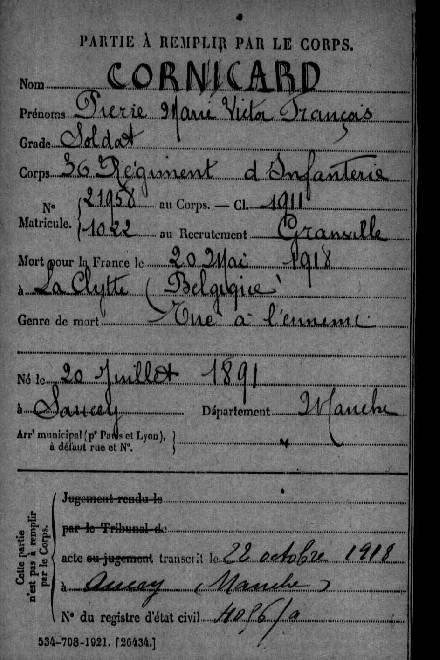 PARTIE À REMPLIR PAR LE CORPS.
Nom CORNICARD
Prénoms Pierre Marie Victor François
Grade Soldat
Corps 36 Régiment d'Infanterie
N° Matricule. { 21958 au Corps. — Cl. 1911
1022 au Recrutement Granville
Mort pour la France le 20 Mai 1918
à La Clytte (Belgique)
Genre de mort Tué à l'ennemi
Né le 20 Juillet 1891
à Saucey Département Manche
Arr^t municipal (p^r Paris et Lyon), à défaut rue et N°. }
Cette partie n'est pas à remplir par le Corps.
Jugement rendu le
par le Tribunal de
acte ou jugement transcrit le 22 octobre 1918
à (Manche)
N° du registre d'état civil
534-708-1921. [26434.]